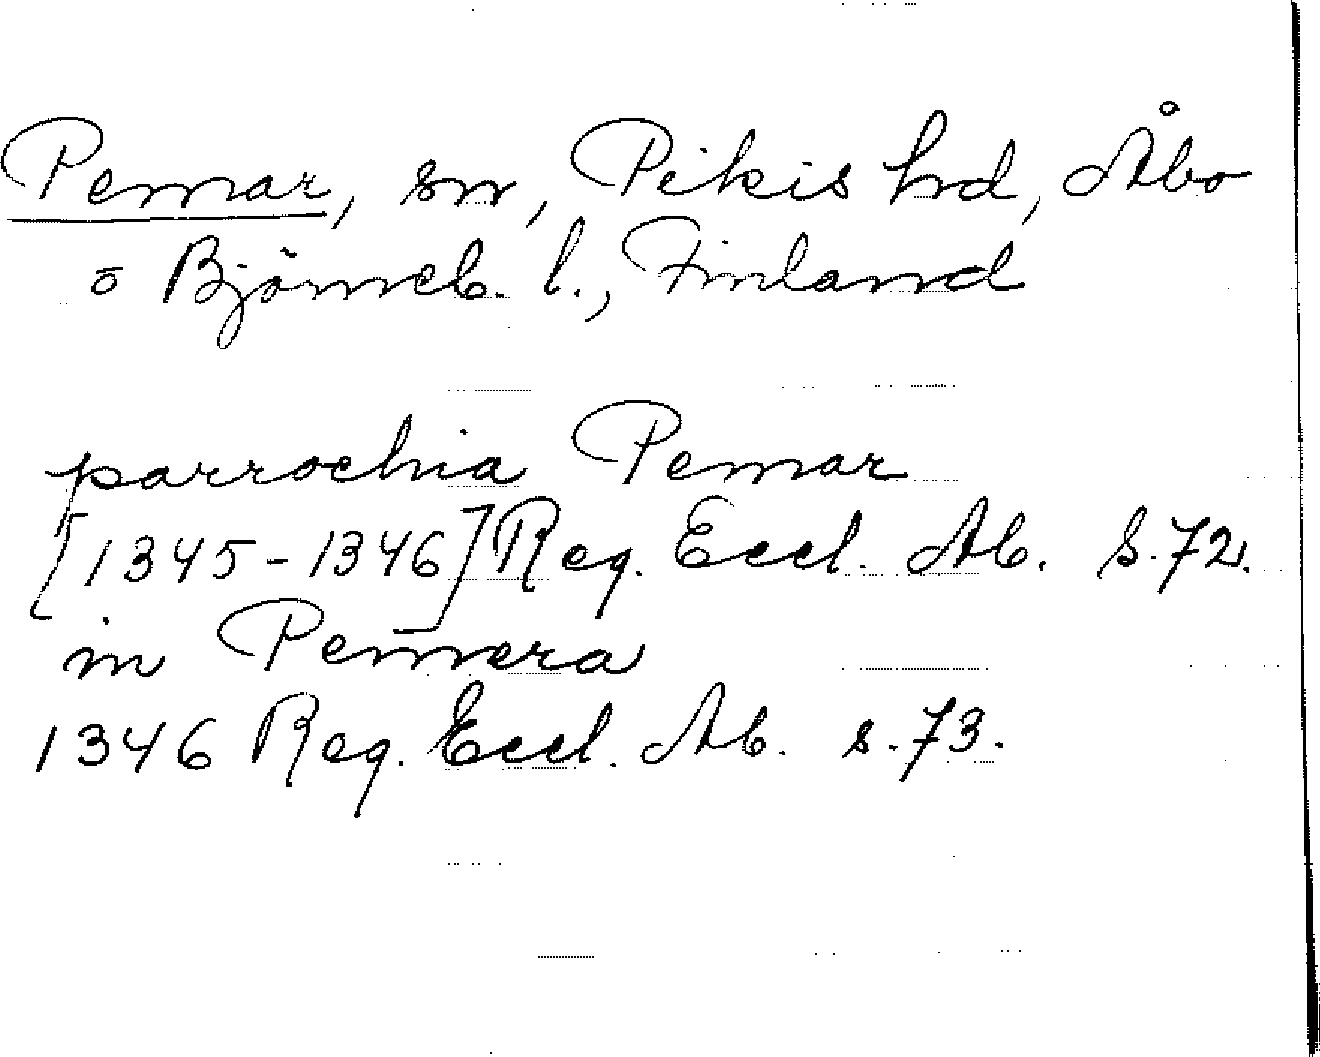 Pemar, sn, Pikis hd, Åbo
o Björneb. l., Finland
parrochia Pemar
[1345-1346] Reg. Eccl. Ab. S. 72.
in Pemera
1346 Reg. Eccl. Ab. s. 73.